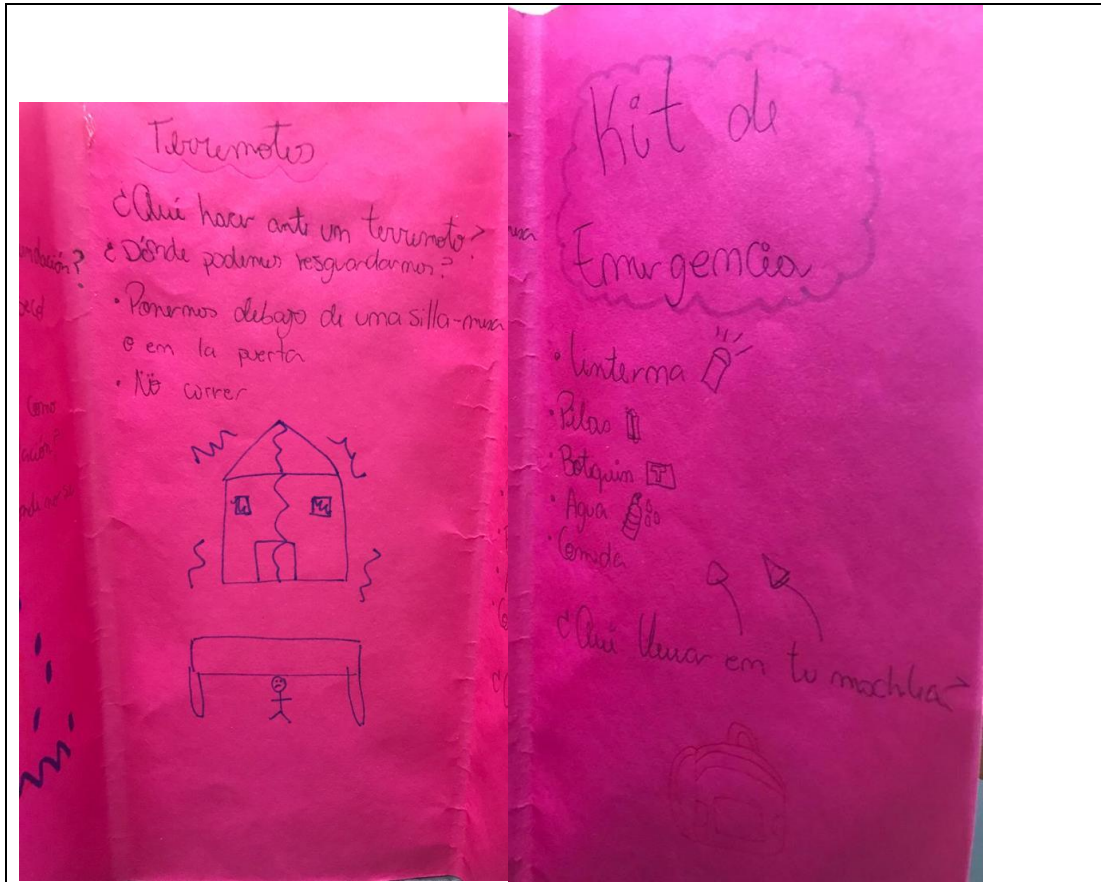 Terremotos
¿Qué hacer ante un terremoto?
¿Dónde podemos resguardarnos?
• Ponernos debajo de una silla-mesa
o en la puerta
• No correr
Kit de
Emergencia
• Linterna
• Pilas
• Botiquín
• Agua
• Comida
¿Qué llevar en tu mochila?